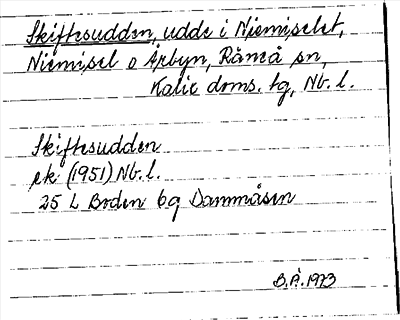 Skiftesudden, udde i Niemiselet,
Niemisel o Årbyn, Råneå sn,
Kalix doms. tg, Nb. l.
Skiftesudden
ek (1951) Nb. l.
25 L Boden 6q Dammåsen
B.Å. 1973